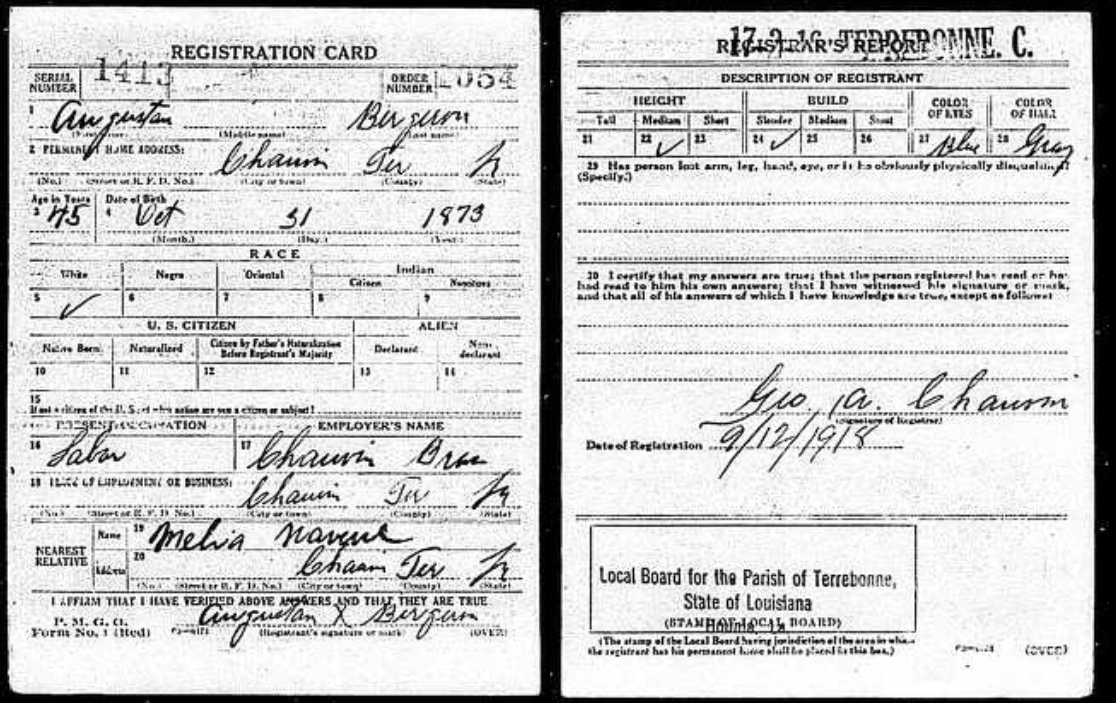 REGISTRATION CARD
SERIAL NUMBER 1413 ORDER NUMBER 1054
1 Augustan Bergeron
(First name) (Middle name) (Last name)
2 PERMANENT HOME ADDRESS: Chauvin Ter La
(No.) (Street or R. F. D. No.) (City or town) (County) (State)
Age in Years Date of Birth
3 45 4 Oct 31 1873
(Month.) (Day.) (Year.)
RACE
White Negro Oriental Indian
Citizen Noncitizen
5 ✓ 6 7 8 9
U. S. CITIZEN ALIEN
Native Born Naturalized Citizen by Father's Naturalization Before Registrant's Majority Declarant Non-declarant
10 11 12 13 14
15
If not a citizen of the U. S., of what nation are you a citizen or subject?
PRESENT OCCUPATION EMPLOYER'S NAME
16 Labor 17 Chauvin Bros
18 PLACE OF EMPLOYMENT OR BUSINESS: Chauvin Ter La
(No.) (Street or R. F. D. No.) (City or town) (County) (State)
NEAREST RELATIVE
Name 19 Melia
Address 20 Chauvin Ter La
(No.) (Street or R. F. D. No.) (City or town) (County) (State)
I AFFIRM THAT I HAVE VERIFIED ABOVE ANSWERS AND THAT THEY ARE TRUE
P. M. G. O.
Form No. 1 (Red) Augustan X Bergeron
(Registrant's signature or mark) (OVER)
17-3-16 TERREBONNE. C.
REGISTRAR'S REPORT
DESCRIPTION OF REGISTRANT
HEIGHT BUILD COLOR OF EYES COLOR OF HAIR
Tall Medium Short Slender Medium Stout
21 22 ✓ 23 24 ✓ 25 26 27 Blue 28 Gray
29 Has person lost arm, leg, hand, eye, or is he obviously physically disqualified?
(Specify.)
30 I certify that my answers are true; that the person registered has read or has
had read to him his own answers; that I have witnessed his signature or mark,
and that all of his answers of which I have knowledge are true, except as follows:
Geo. A. Chauvin
(Signature of Registrar)
Date of Registration 9/12/1918
Local Board for the Parish of Terrebonne,
State of Louisiana
Houma, La.
(STAMP OF LOCAL BOARD)
(The stamp of the Local Board having jurisdiction of the area in which
the registrant has his permanent home shall be placed in this box.)
(OVER)